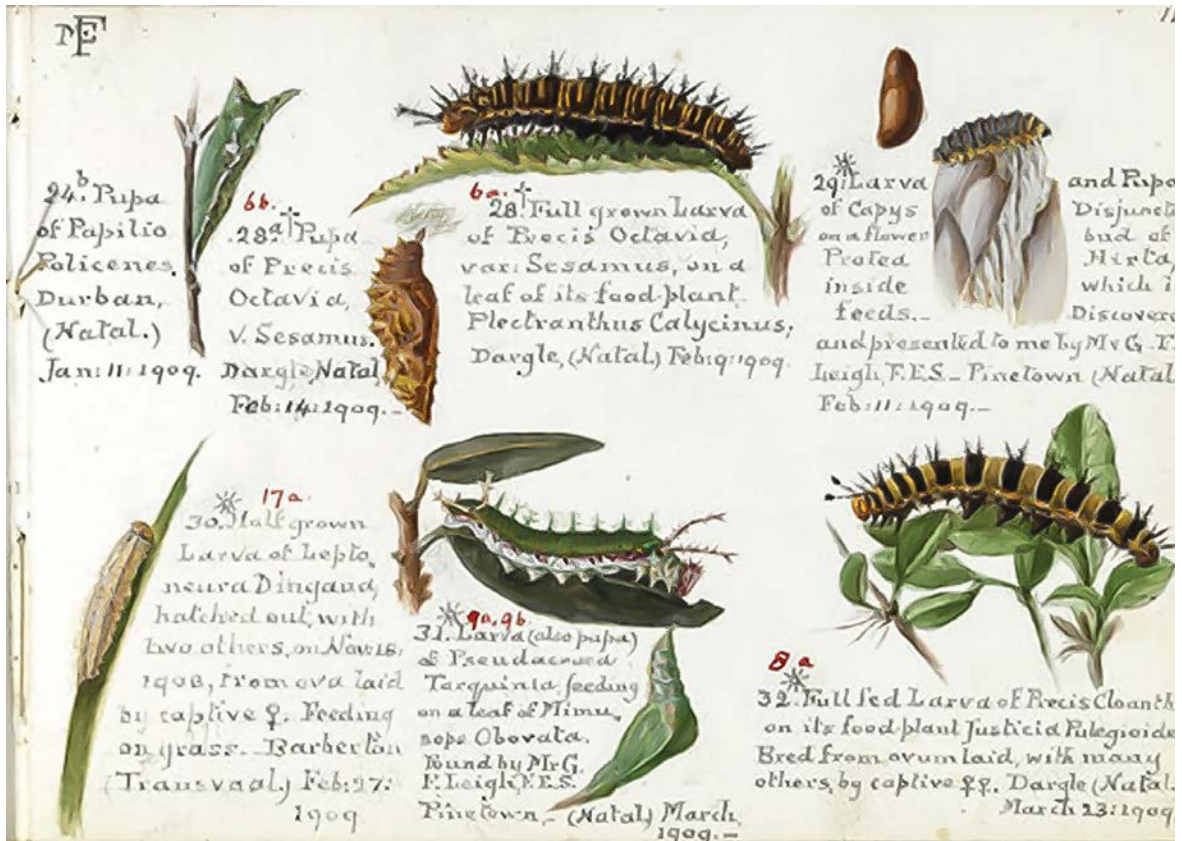 MEF
11
24.b Pupa
of Papilio
Policenes.
Durban,
(Natal.)
Jan: 11: 1909.
6b.
28.a † Pupa
of Precis
Octavia,
v. Sesamus.
Dargle, Natal
Feb: 14: 1909.-
6a.
28. † Full grown Larva
of Precis Octavia,
var: Sesamus, on a
leaf of its food-plant
Plectranthus Calycinus,
Dargle, (Natal) Feb: 9: 1909.
29. Larva and Pupa
of Capys Disjunct
on a flower bud of
Protea Hirta,
inside which i
feeds.- Discovere
and presented to me by Mr G. F.
Leigh, F.E.S - Pinetown (Natal
Feb: 11: 1909.-
17a.
30. Half grown
Larva of Lepto,
neura Dingana,
hatched out, with
two others, on Nov: 18:
1908, from ova laid
by captive ♀. Feeding
on grass.- Barberton
(Transvaal) Feb: 27:
1909
9a, 9b.
31. Larva (also pupa)
of Pseudacraea
Tarquinia, feeding
on a leaf of Mimu,
sops Obovata.
Found by Mr G.
F. Leigh, F.E.S.
Pinetown, - (Natal) March,
1909.-
8a
32. Full fed Larva of Precis Cloanth
on its food-plant Justicia Pulegioide
Bred from ovum laid, with many
others, by captive ♀♀. Dargle (Natal.
March 23: 1909